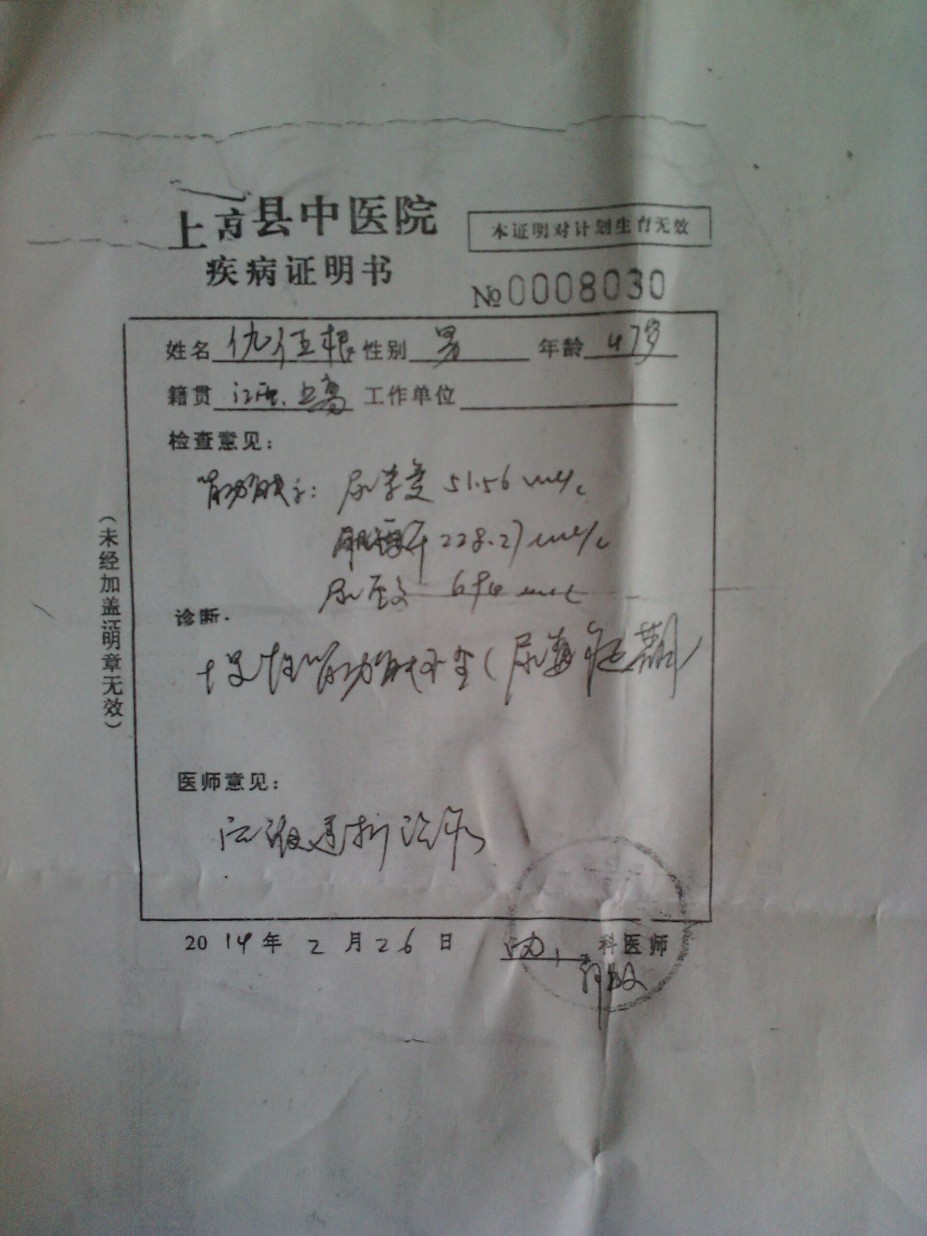 上高县中医院
本证明对计划生育无效
疾病证明书
№0008030
姓名 仇伍根 性别 男 年龄 47岁
籍贯 江西.上高 工作单位
检查意见：
肾功能示：尿素氮 51.56
肌酐 228.27
尿酸 694
诊断.
慢性肾功能不全（尿毒症期）
医师意见：
应做透析治疗
2014年 2月26日 内 科医师
（未经加盖证明章无效）